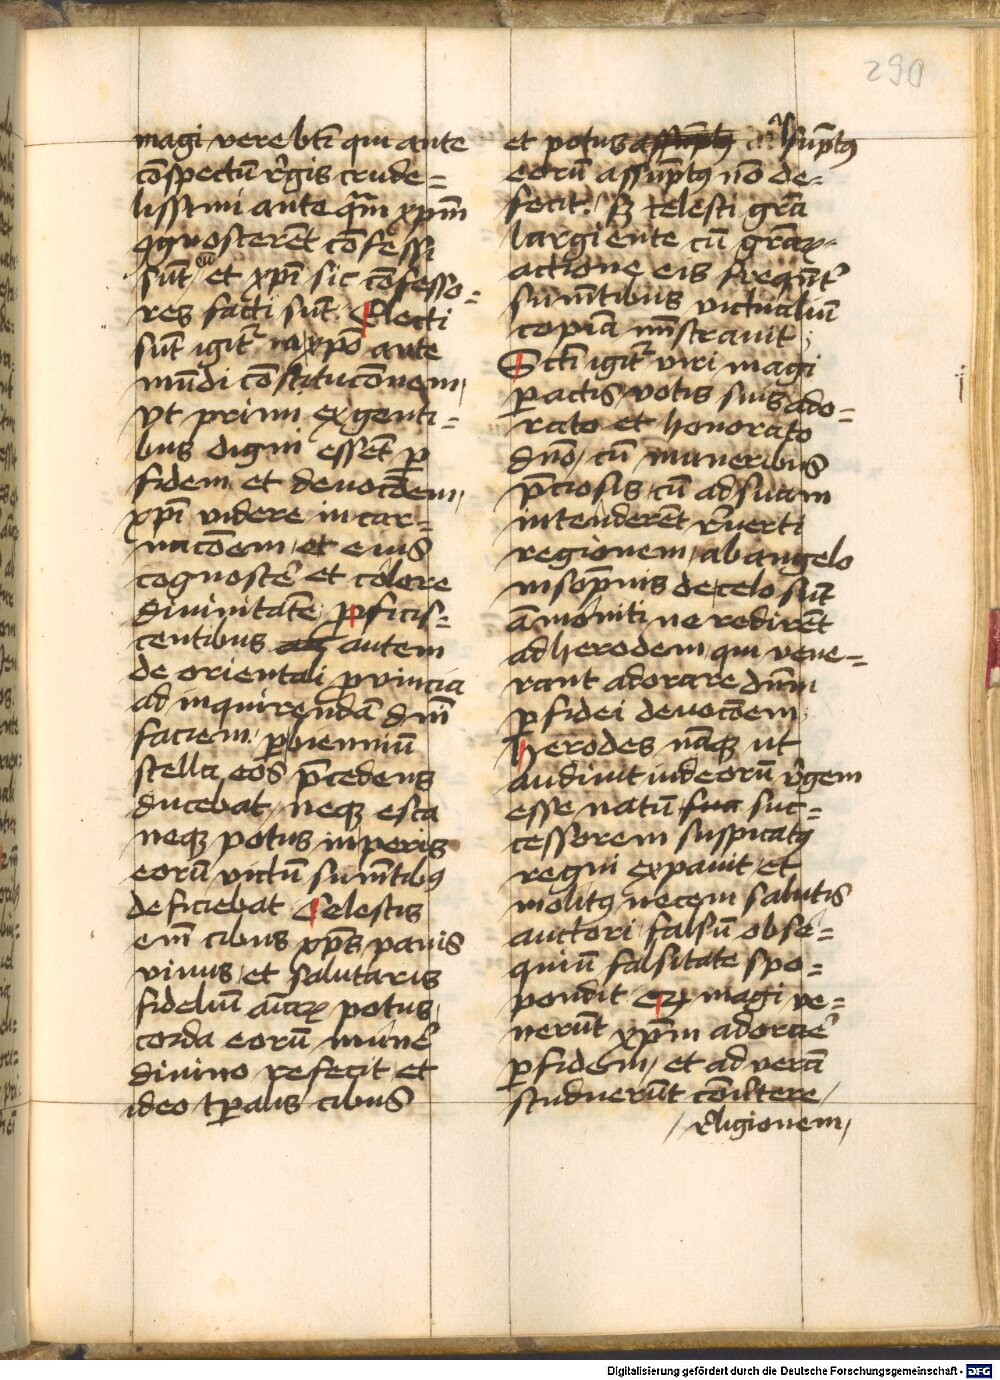 290
magi vere bti qui ante
cōspectū rgis crude=
lissimi ante qm xpm
cognoscerēt confessi
sūt eū et xpi sic cōfesso=
res facti sūt. Electi
sūt igitr in xpo ante
mūdi cōstitucōnem,
vt primi ex genti=
bus digni essēt p
fidem et deuocōem,
xpi videre in car=
nacōem, et eius
cognoscē et colere
diuinitatē pficis=
centibus autem
de orientali prouincia
ad inquirendā dm
faciem,
stella eos pcedens
ducebat, neque esca
neque potus in peris
eorū victū sumtibus
deficiebat Celestis
em cibus xps panis
viuus et salutaris
fidelium potus,
corda eorū munē
diuino refecit et
ideo tpalis cibus
et potus
eorū assūptus nō de=
fecit. s celesti gra
largiente cū gra
actione eis freqnt
sumtibus victualiū
copiā mstrauit;
Scti igitr viri magi
pactis votis suis ado=
rato et honorato
dno, cū muneribus
pciosis, cū ad suam
intenderēt rverti
regionem, ab angelo
in sopnis de celo sūt
āmoniti ne redirēt
ad herodem qui vene=
rant adorare dnm
p fidei deuocōem,
Herodes naque ut
audiuit iudeorū rgem
esse natū suc=
cessorem suspicatus
regni expauit et
molitus necem salutis
auctori falsū obse=
quiū falsitate spo=
pondit magi ve=
nerūt xpm adorare
p fidem, et ad verā
studuerūt cōvertere,
/ religionem,
Digitalisierung gefördert durch die Deutsche Forschungsgemeinschaft - DFG